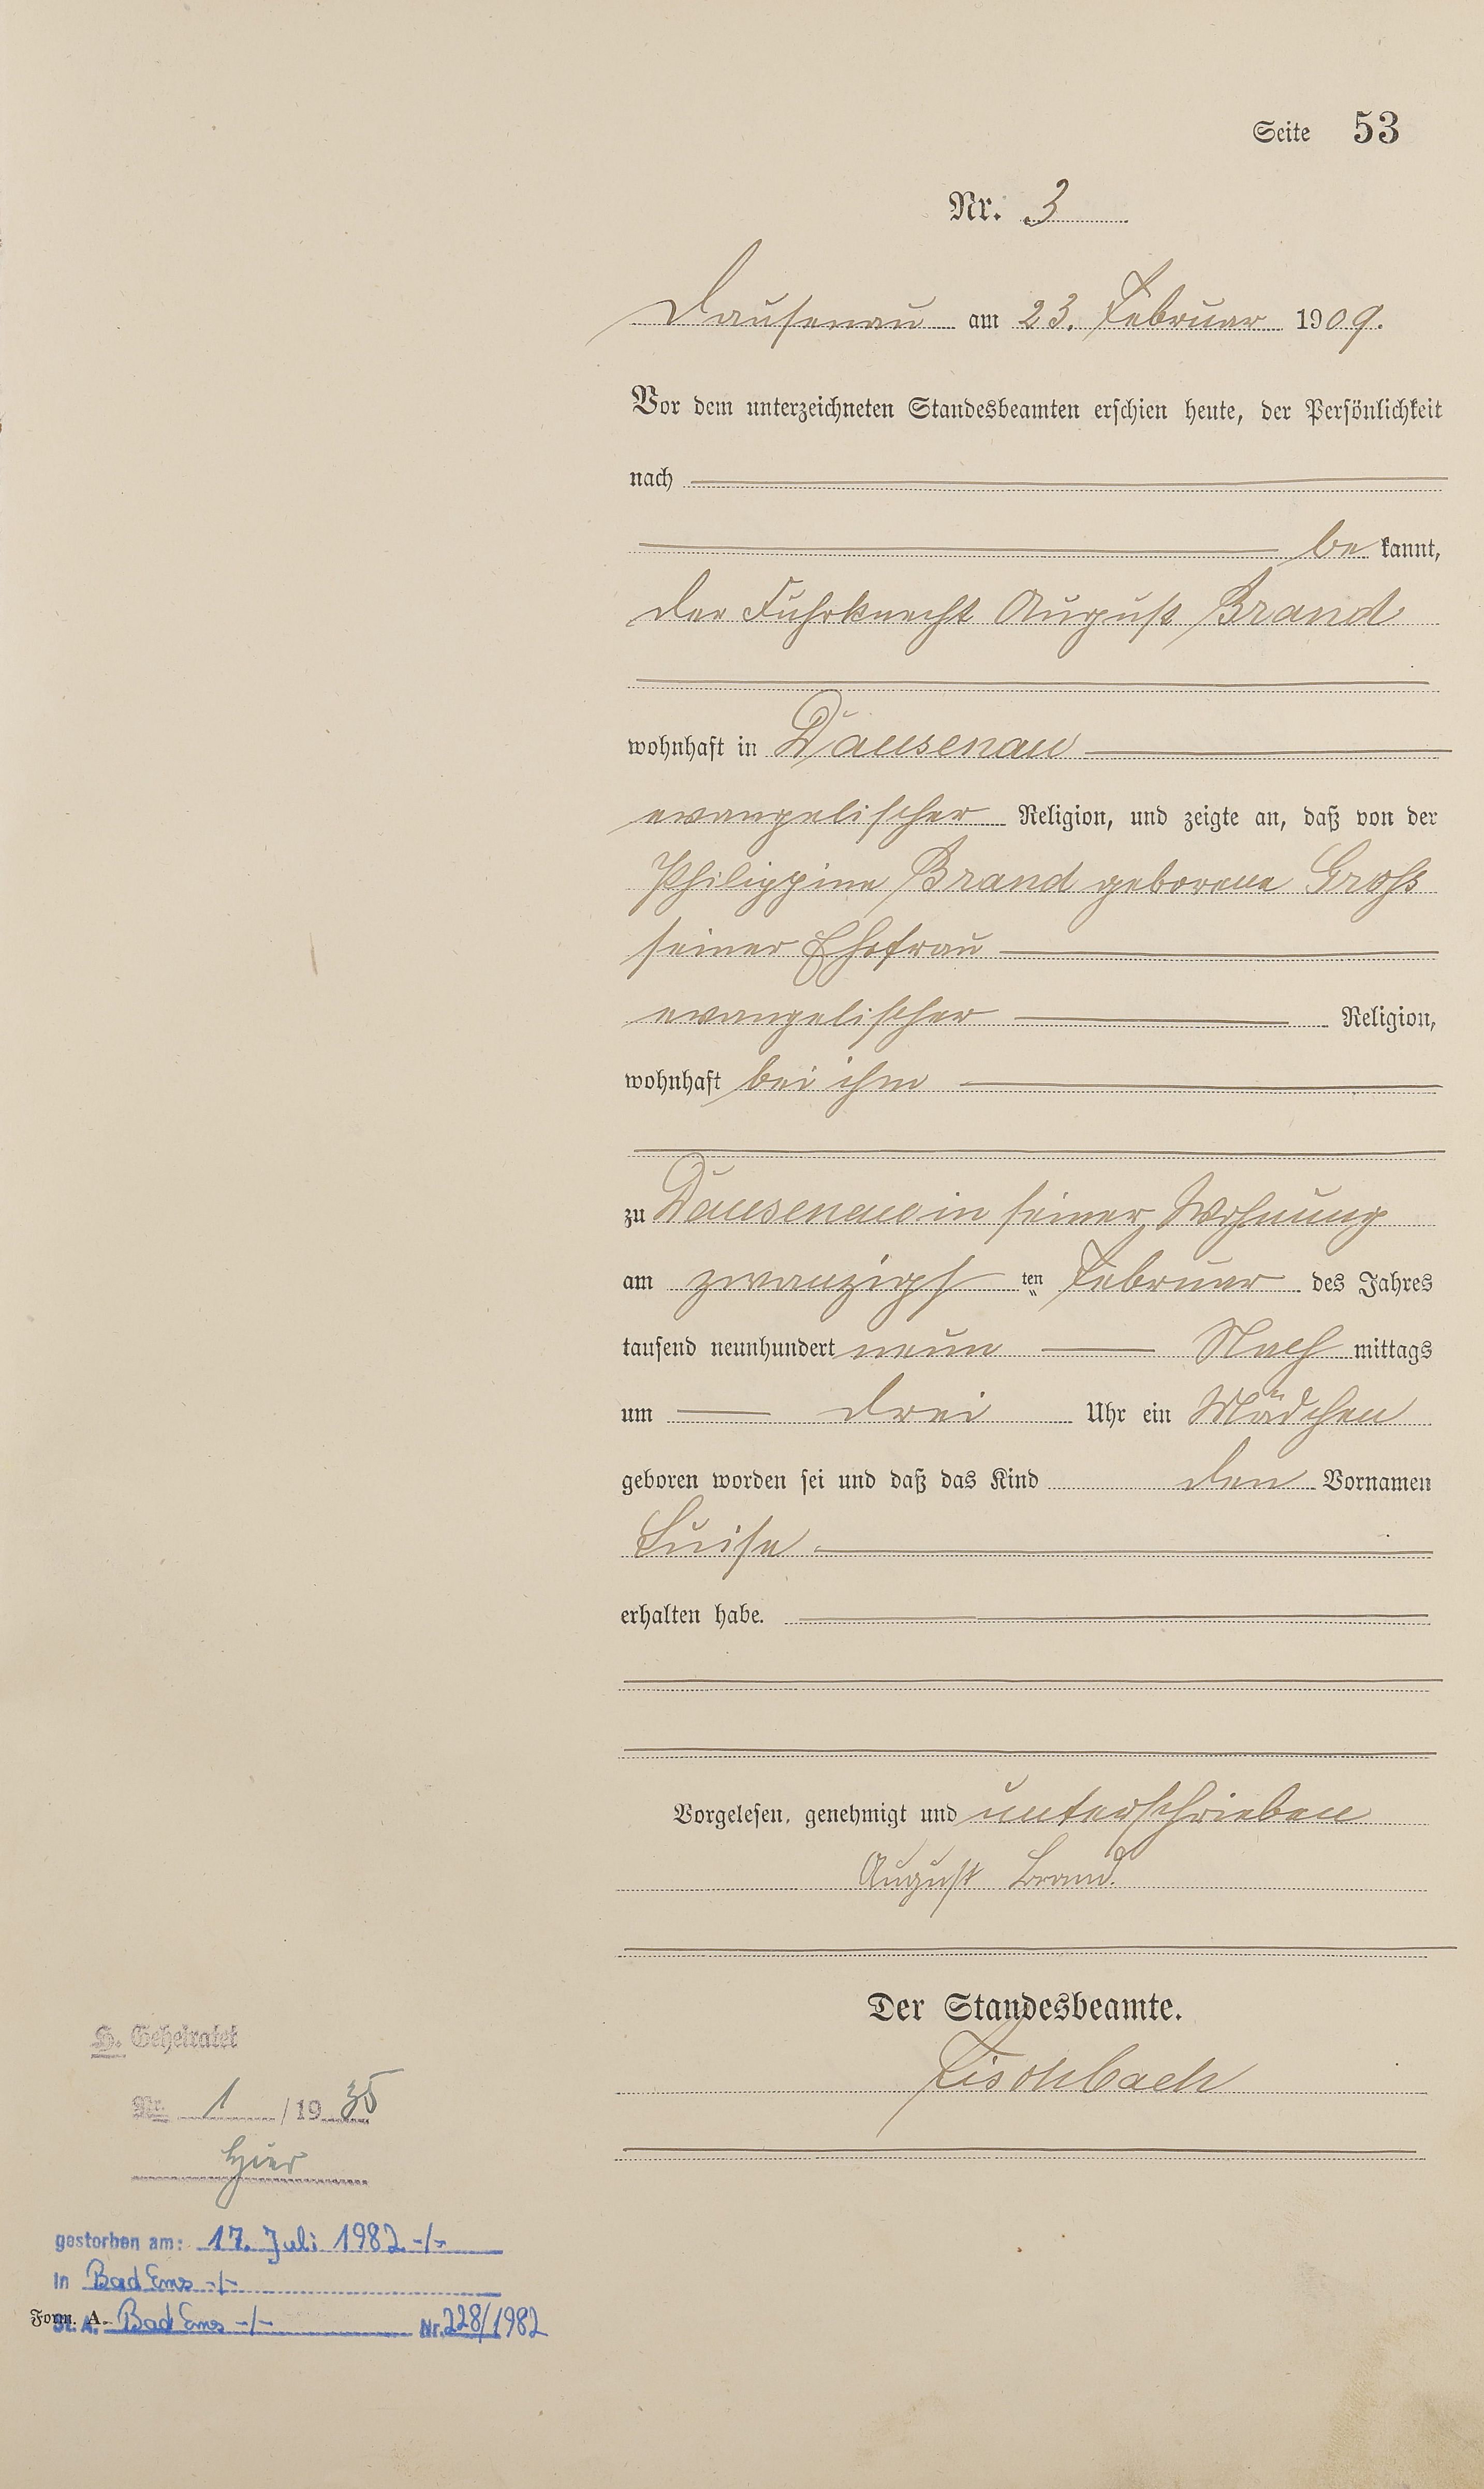 Seite 53
Nr. 3
Dausenau am 23. Februar 1909.
Vor dem unterzeichneten Standesbeamten erschien heute, der Persönlichkeit
nach
be kannt,
der Fuhrknecht August Brand
wohnhaft in Dausenau
evangelischer Religion, und zeigte an, daß von der
Philippine Brand geborene Groß
seiner Ehefrau
evangelischer Religion,
wohnhaft bei ihm
zu Dausenau in seiner Wohnung
am zwanzigs ten Februar des Jahres
tausend neunhundert neun Nach mittags
um drei Uhr ein Mädchen
geboren worden sei und daß das Kind den Vornamen
Luise
erhalten habe.
Vorgelesen, genehmigt und unterschrieben
August Brand.
Der Standesbeamte.
Fischbach
H. Geheiratet
Nr. 1 / 19 35
hier
gestorben am: 17. Juli 1982 -/-
in Bad Ems -/-
Form. A.
St. A. Bad Ems -/- Nr. 228/1982